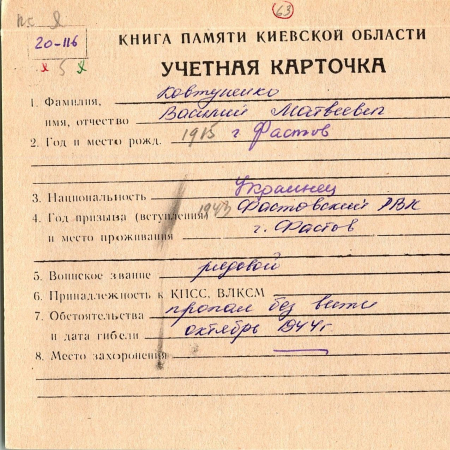 63
20-116
КНИГА ПАМЯТИ КИЕВСКОЙ ОБЛАСТИ
УЧЕТНАЯ КАРТОЧКА
1. Фамилия, Ковтуненко
имя, отчество Василий Матвеевич
2. Год и место рожд. 1915 г Фастов
3. Национальность Украинец
4. Год призыва (вступления) 1943 Фастовский РВК
и место проживания г. Фастов
5. Воинское звание рядовой
6. Принадлежность к КПСС, ВЛКСМ
7. Обстоятельства пропал без вести
и дата гибели октябрь 1944г
8. Место захоронения —